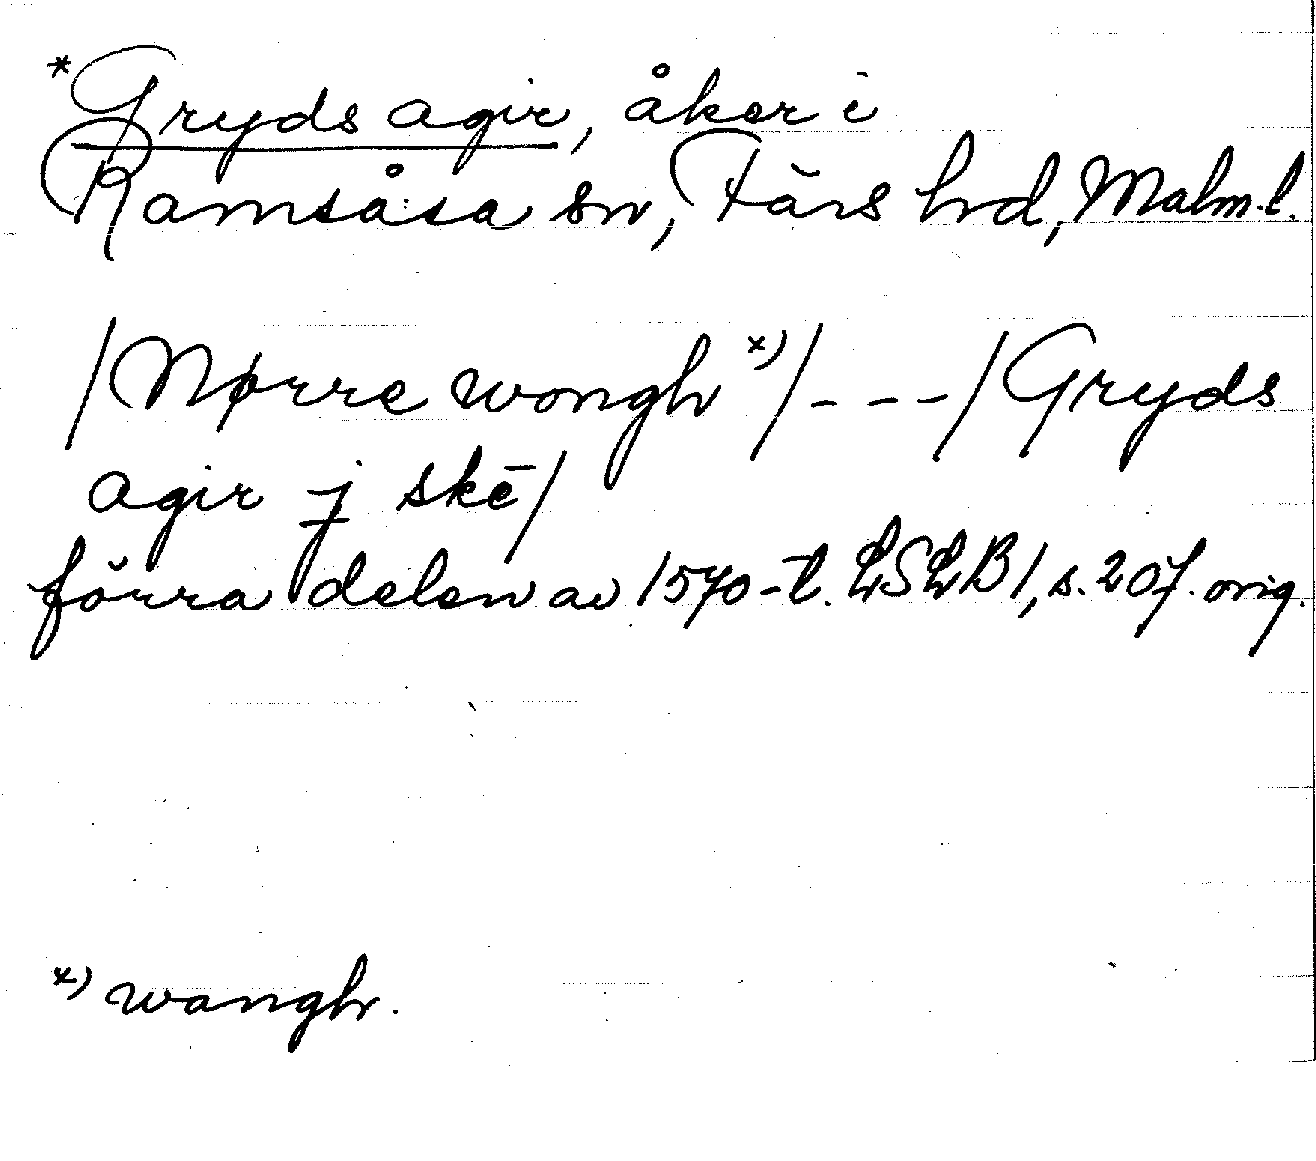 *Gryds agir, åker i
Ramsåsa sn, Färs hrd, Malm. l.
/Nørre wongh *)/ - - - / Gryds
agir j skē/
förra delen av 1570-t. LSLB 1, s. 207. orig.
*) wangh.